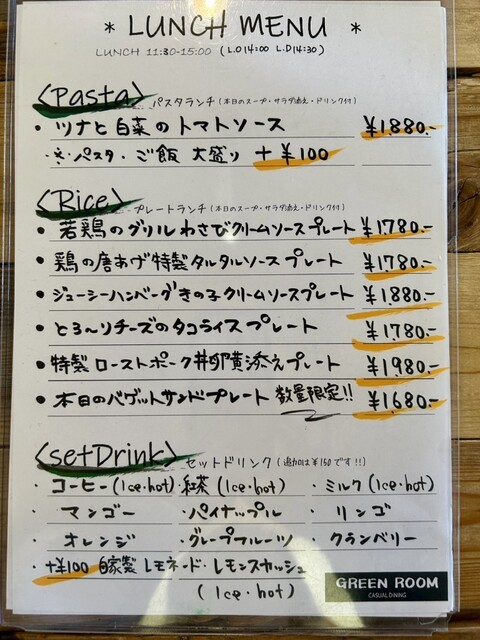 * LUNCH MENU *
LUNCH 11:30-15:00 (L.O 14:00 L.D 14:30)
<Pasta> パスタランチ(本日のスープ・サラダ添え・ドリンク付)
・ツナと白菜のトマトソース ¥1.880.-
・パスタ・ご飯 大盛り +¥100
<Rice> プレートランチ(本日のスープ・サラダ添え・ドリンク付)
・若鶏のグリルわさびクリームソースプレート ¥1780.-
・鶏の唐あげ特製タルタルソースプレート ¥1780.-
・ジューシーハンバーグきの子クリームソースプレート ¥1.880.-
・とろ〜りチーズのタコライスプレート ¥1.780-
・特製ローストポーク丼卵黄添えプレート ¥1980.-
・本日のバゲットサンドプレート 数量限定!! ¥1680.-
<setDrink> セットドリンク(追加は¥150です!!)
・コーヒー(Ice・hot)・紅茶(Ice・hot) ・ミルク(Ice・hot)
・マンゴー ・パイナップル ・リンゴ
・オレンジ ・グレープフルーツ ・クランベリー
・+¥100 自家製レモネード・レモンスカッシュ
(Ice・hot)
GREEN ROOM
CASUAL DINING